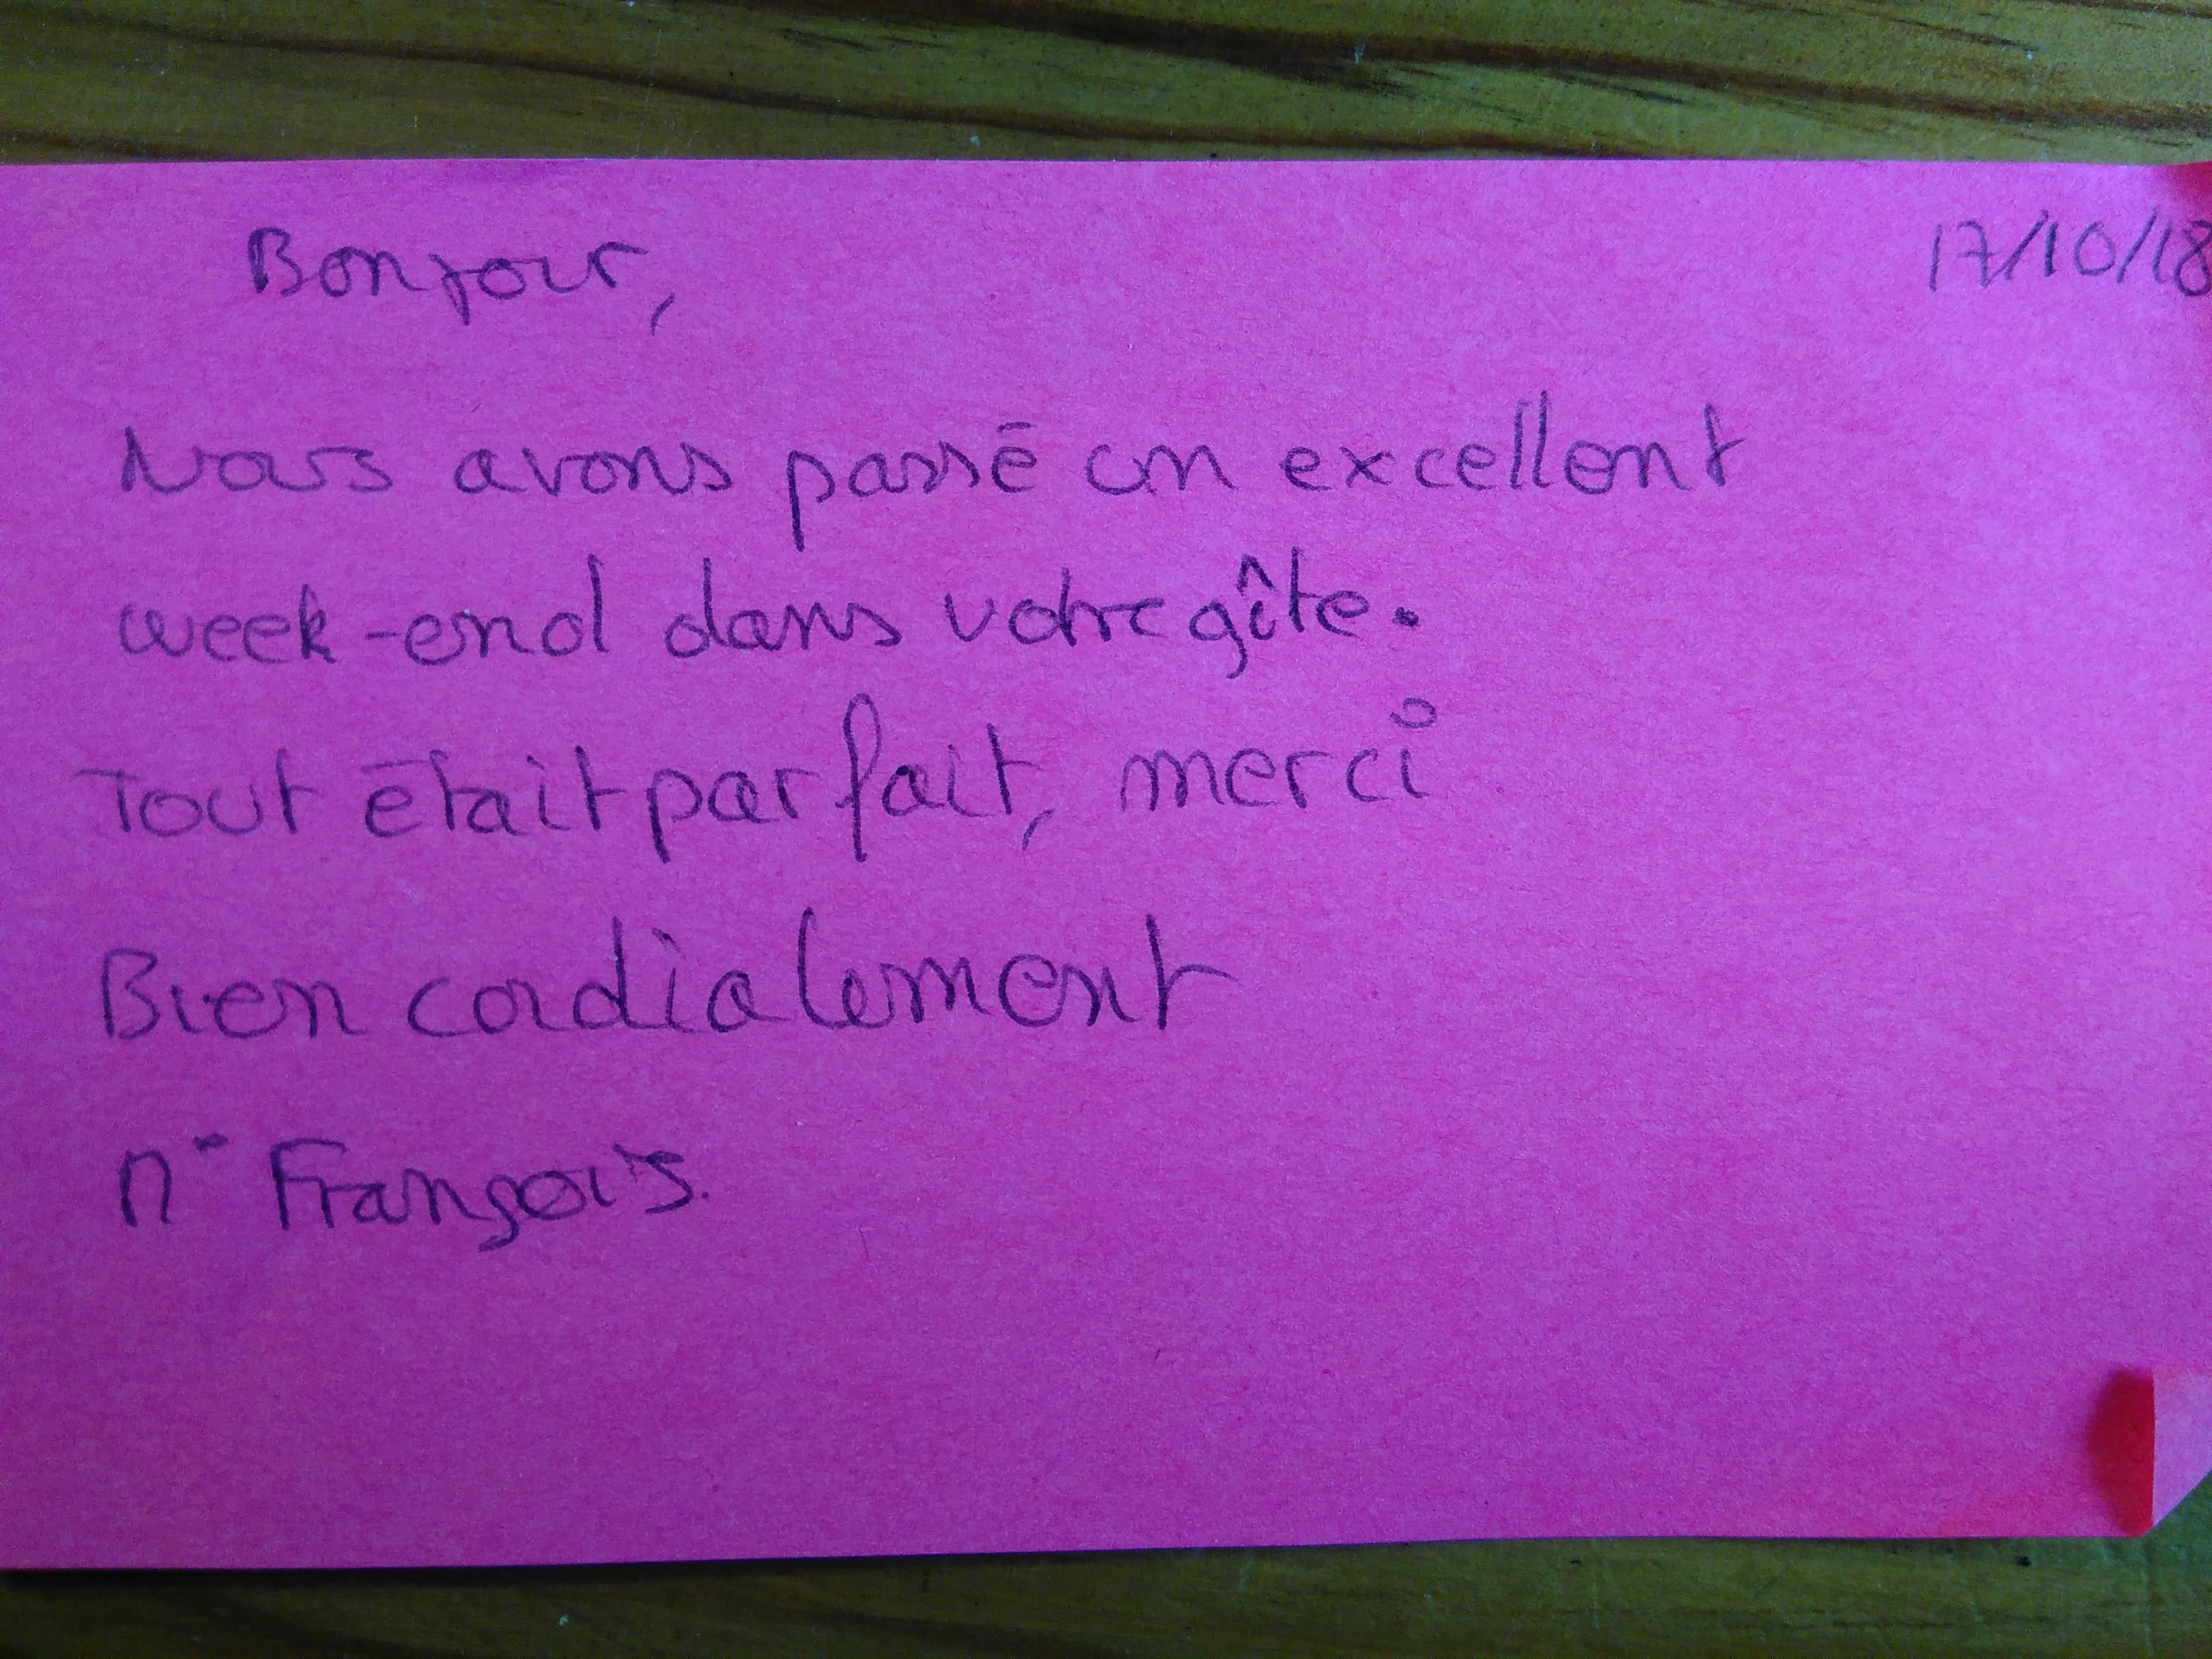 Bonjour, 17/10/18
Nous avons passé un excellent
week-end dans votre gîte.
Tout était parfait, merci
Bien cordialement
François.